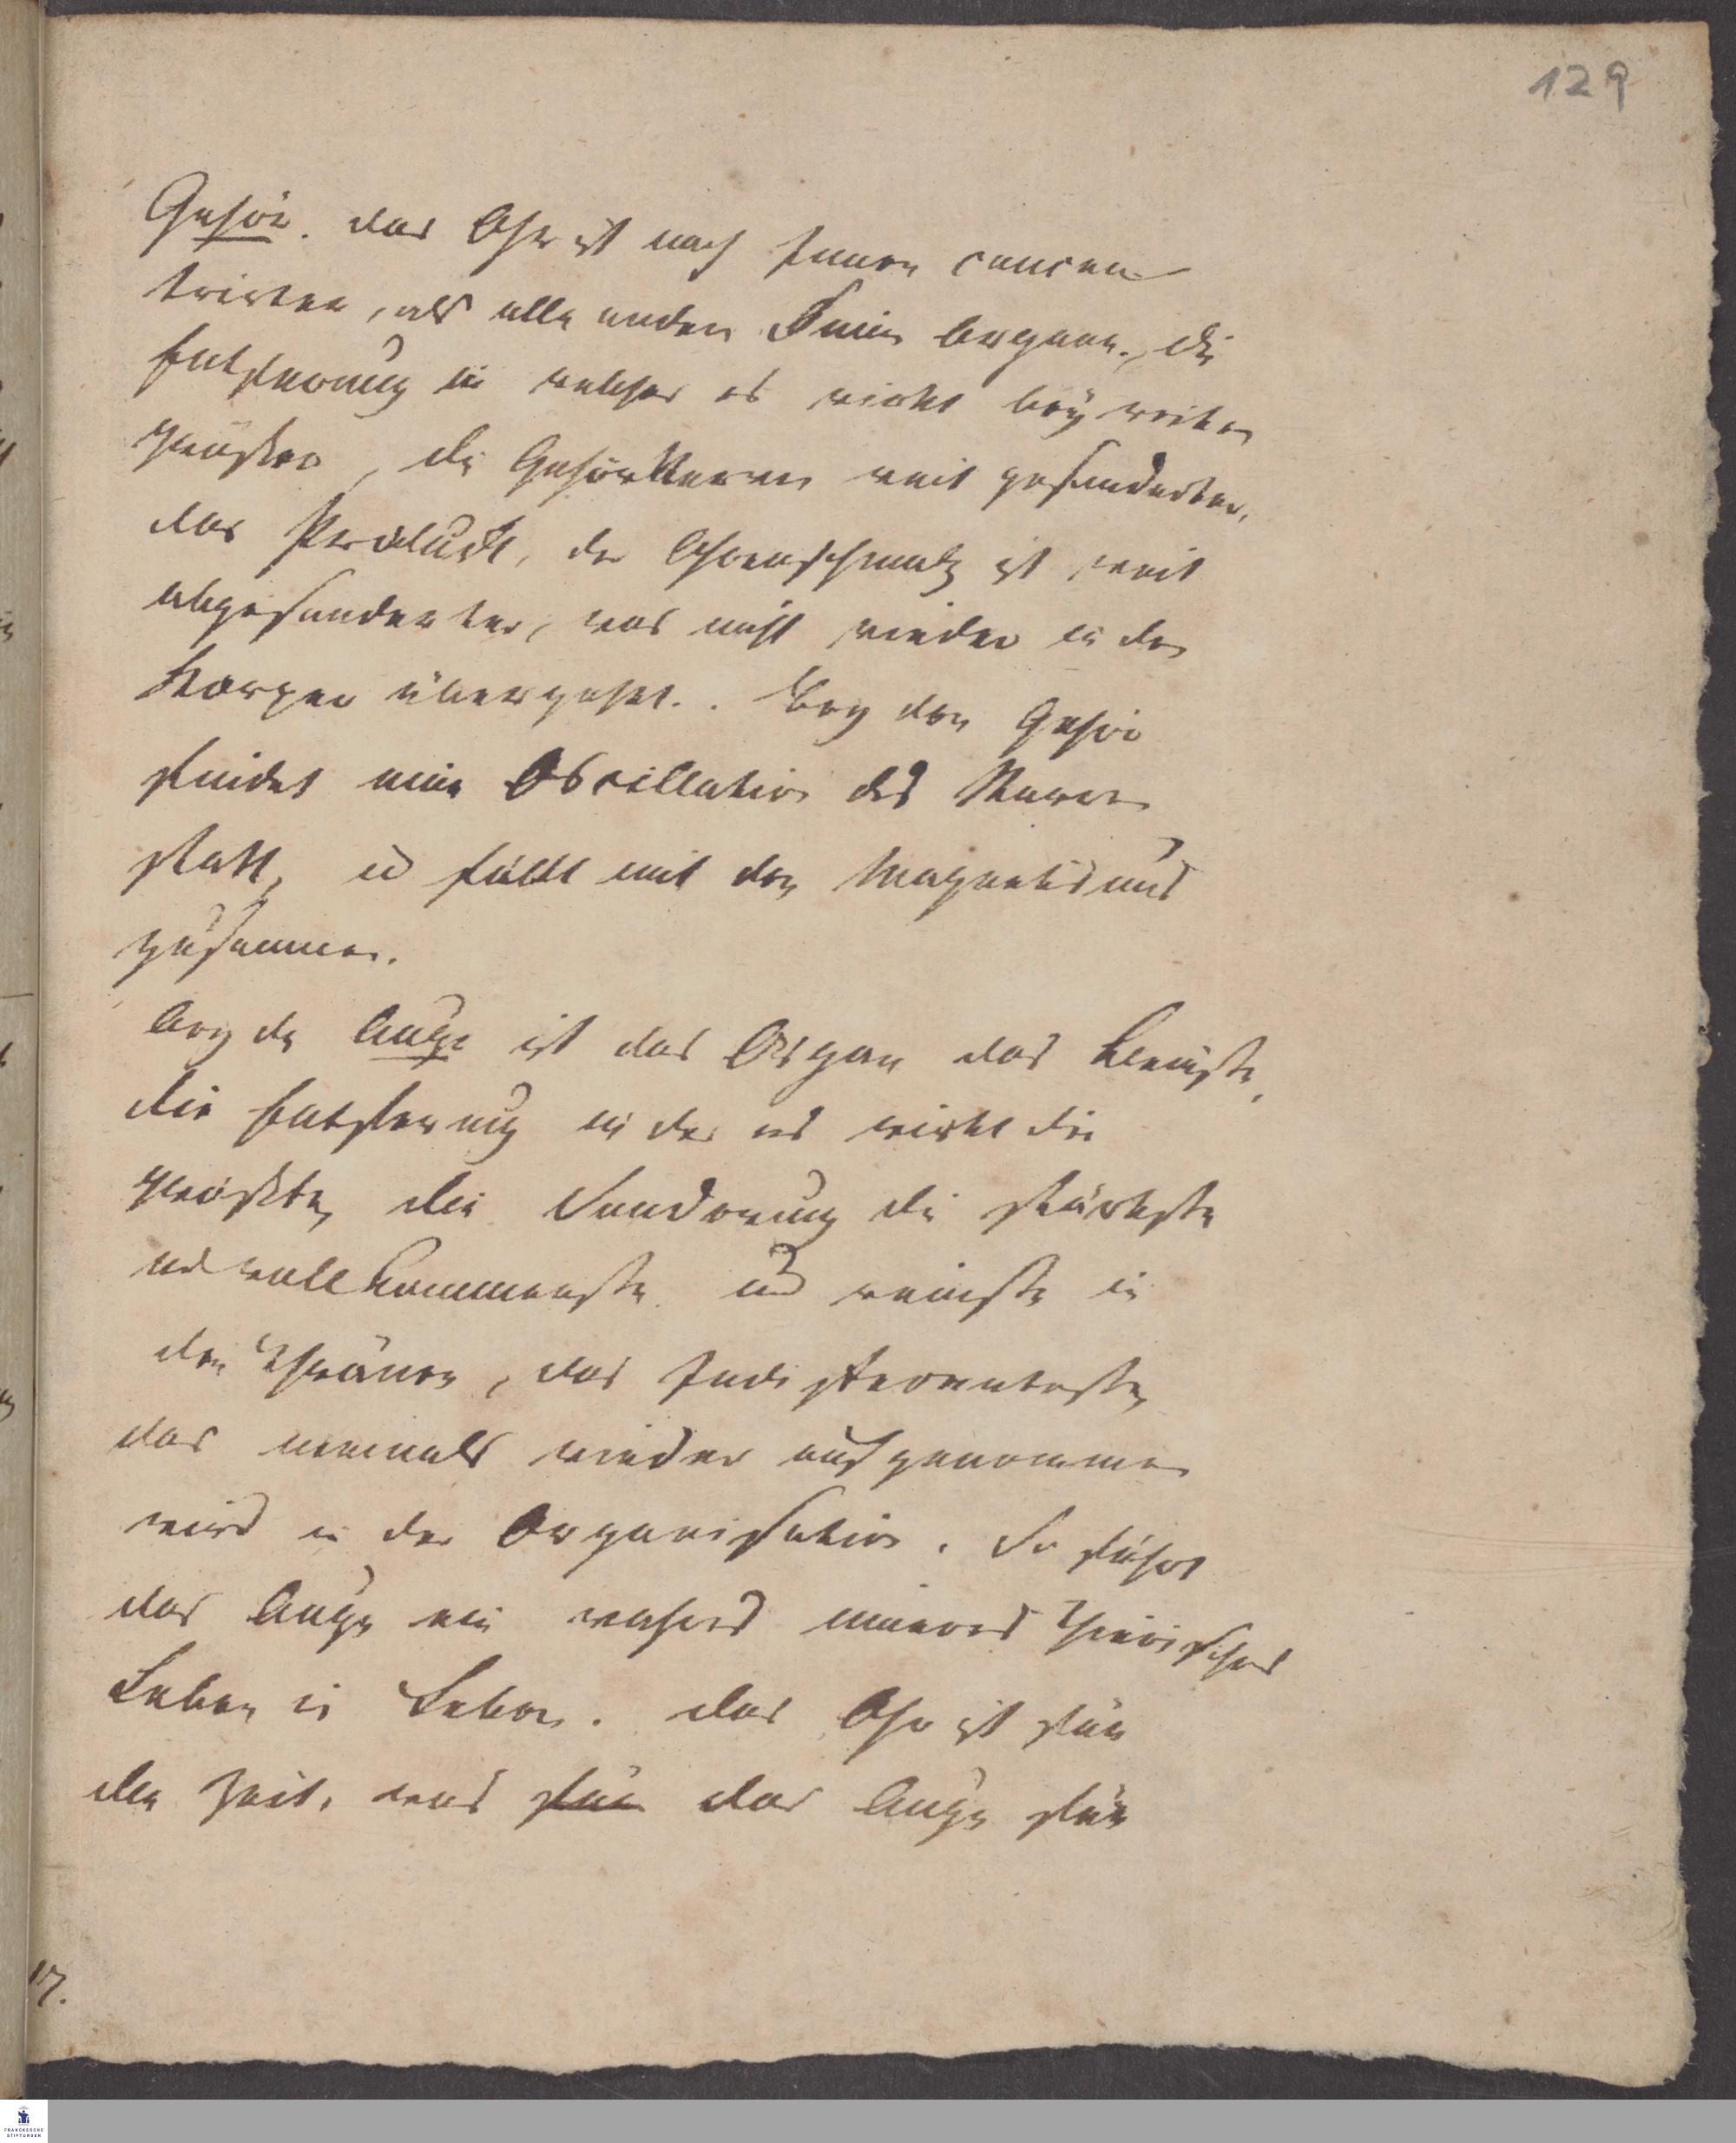 129
Gehör. das Ohr ist nach Innen concen
trirter, als alle andern Sinn Organe, die
Entfernung in welcher es wirkt bey weiten
größer, die Gehör Nerven weit gesonderter,
das Product, der Ohrenschmalz ist weit
abgesonderter, was nicht wieder in den
Körper übergehet. Bey dem Gehör
findet eine Oscillation des Nerven
statt, u fällt mit dem Magnetismus
zusammen.
Bey dem Auge ist das Organ das kleinste,
die Entfernung in der es wirkt die
größte, die Sonderung die stärkste
und vollkommenste und reinste in
den Thränen, das Indifferenteste,
das niemals wieder aufgenommen
wird in der Organisation. So führt
das Auge ein wahres inneres thierisches
Leben im Leben. das Ohr ist für
die Zeit, was für das Auge für
17.
FRANCKESCHE
STIFTUNGEN